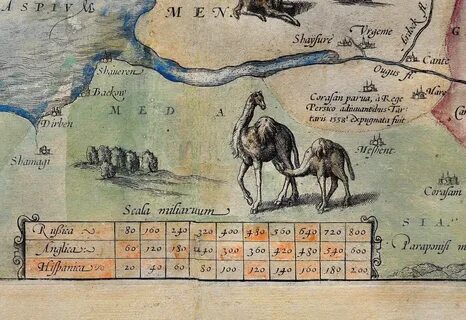 ASPIVM
MEN
Shaysuré
Vrgeme
Cante
Ougus fl.
Shaueren
Backow
Derbent
Shamagi
MEDA
Corasan parua, à Rege
Persico adiuuantibus Tar-
taris 1558 expugnata fuit
Mare
Meshent
Corasam
SIA
Paraponisi m
Scala miliarium
Russica 80 160 240 320 400 480 560 640 720 800
Anglica 60 120 180 240 300 360 420 480 540 600
Hispanica 20 40 60 80 100 120 140 160 180 200